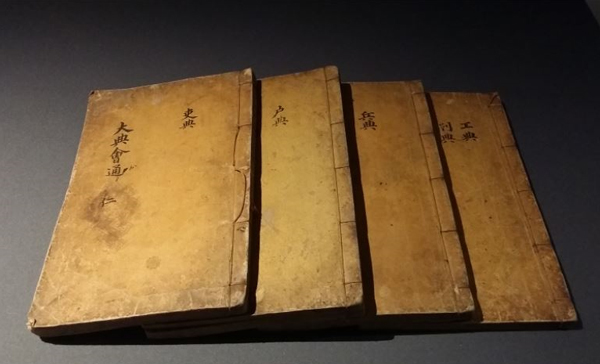 大典會通 仁
吏典
戶典
兵典
刑典
工典